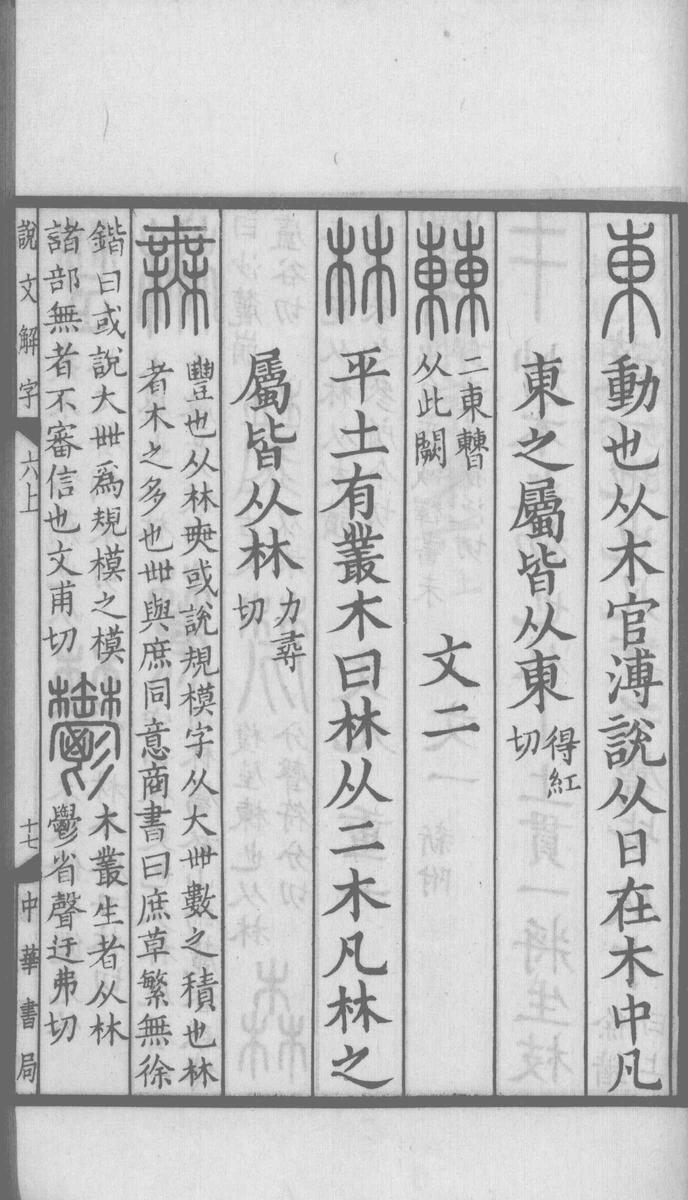 東動也从木官溥說从日在木中凡
東之屬皆从東得紅
切
𣡌二東曹
从此闕
文二
林平土有叢木曰林从二木凡林之
屬皆从林力尋
切
豐也从林𡘲或說規模字从大𠦜數之積也林
者木之多也𠦜與庶同意商書曰庶草繁無徐
鍇曰或說大𠦜爲規模之模
諸部無者不審信也文甫切
鬱木叢生者从林
鬱省聲迂弗切
說文解字
六上
十七
中華書局